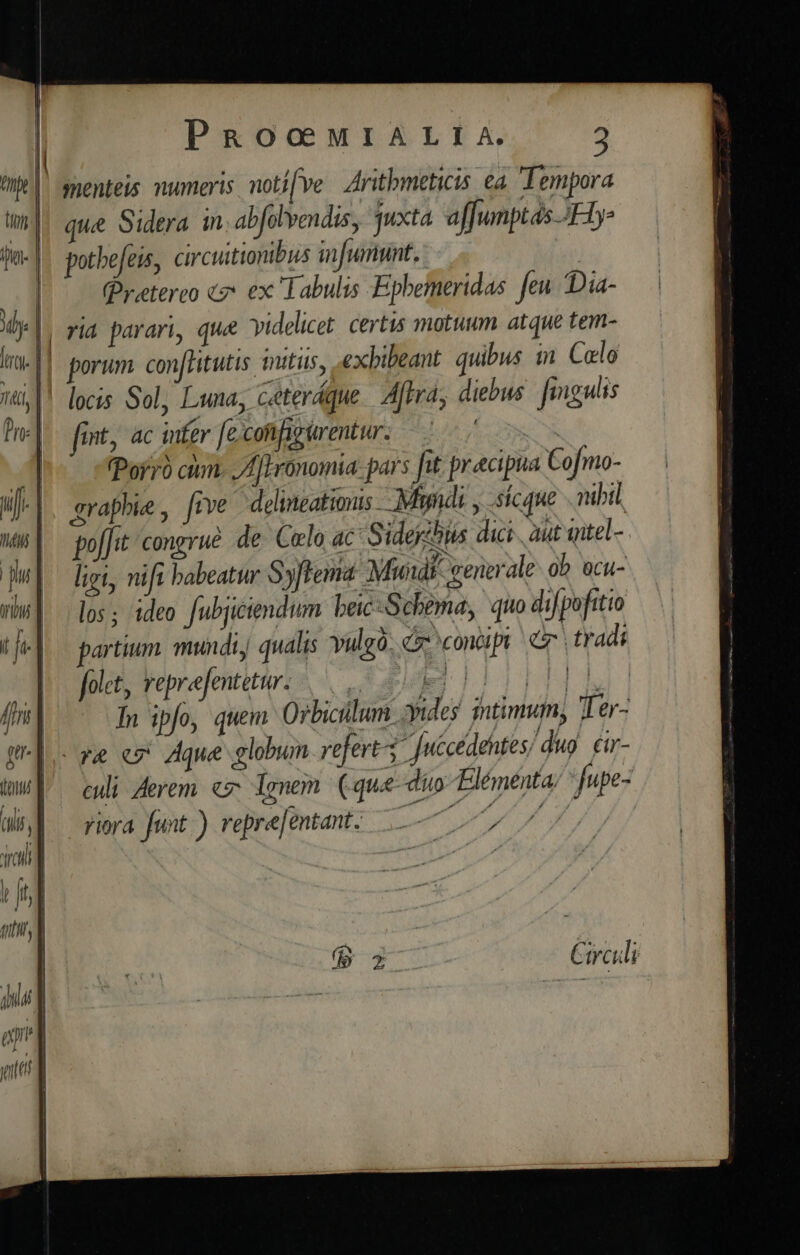 PROOEMIALIA. 3
menteis numeris notiſve Arithmeticis ea Tempora
quæ Sidera in abſolvendis, juxta aſſumptas Hy-
potheſeis, circuitionibus inſumunt.
Prætereo & ex Tabulis Ephemeridas ſeu Dia-
ria parari, quæ videlicet certis motuum atque tem-
porum conſtitutis initiis, exhibeant quibus in Cælo
locis Sol, Luna, cæteráque Aſtra, diebus ſingulis
ſint, ac inter ſe configurentur.
Porrò cùm Aſtronomia pars ſit præcipua Coſmo-
graphiæ, ſive delineationis Mundi, sicque nihil
poſſit congruè de Cælo ac Sideribus dici aut intel-
ligi, niſi habeatur Syſtema Mundi generale ob ocu-
los; ideo ſubjiciendum heic Schema, quo diſpoſitio
partium mundi, qualis vulgò & concipi & tradi
ſolet, repræſentetur.
In ipſo, quem Orbiculum vides intimum, Ter-
ræ & Aquæ globum refert; ſuccedentes duo cir-
culi Aerem & Ignem (quæ duo Elementa ſupe-
riora ſunt) repræſentant.
B 2 Circuli